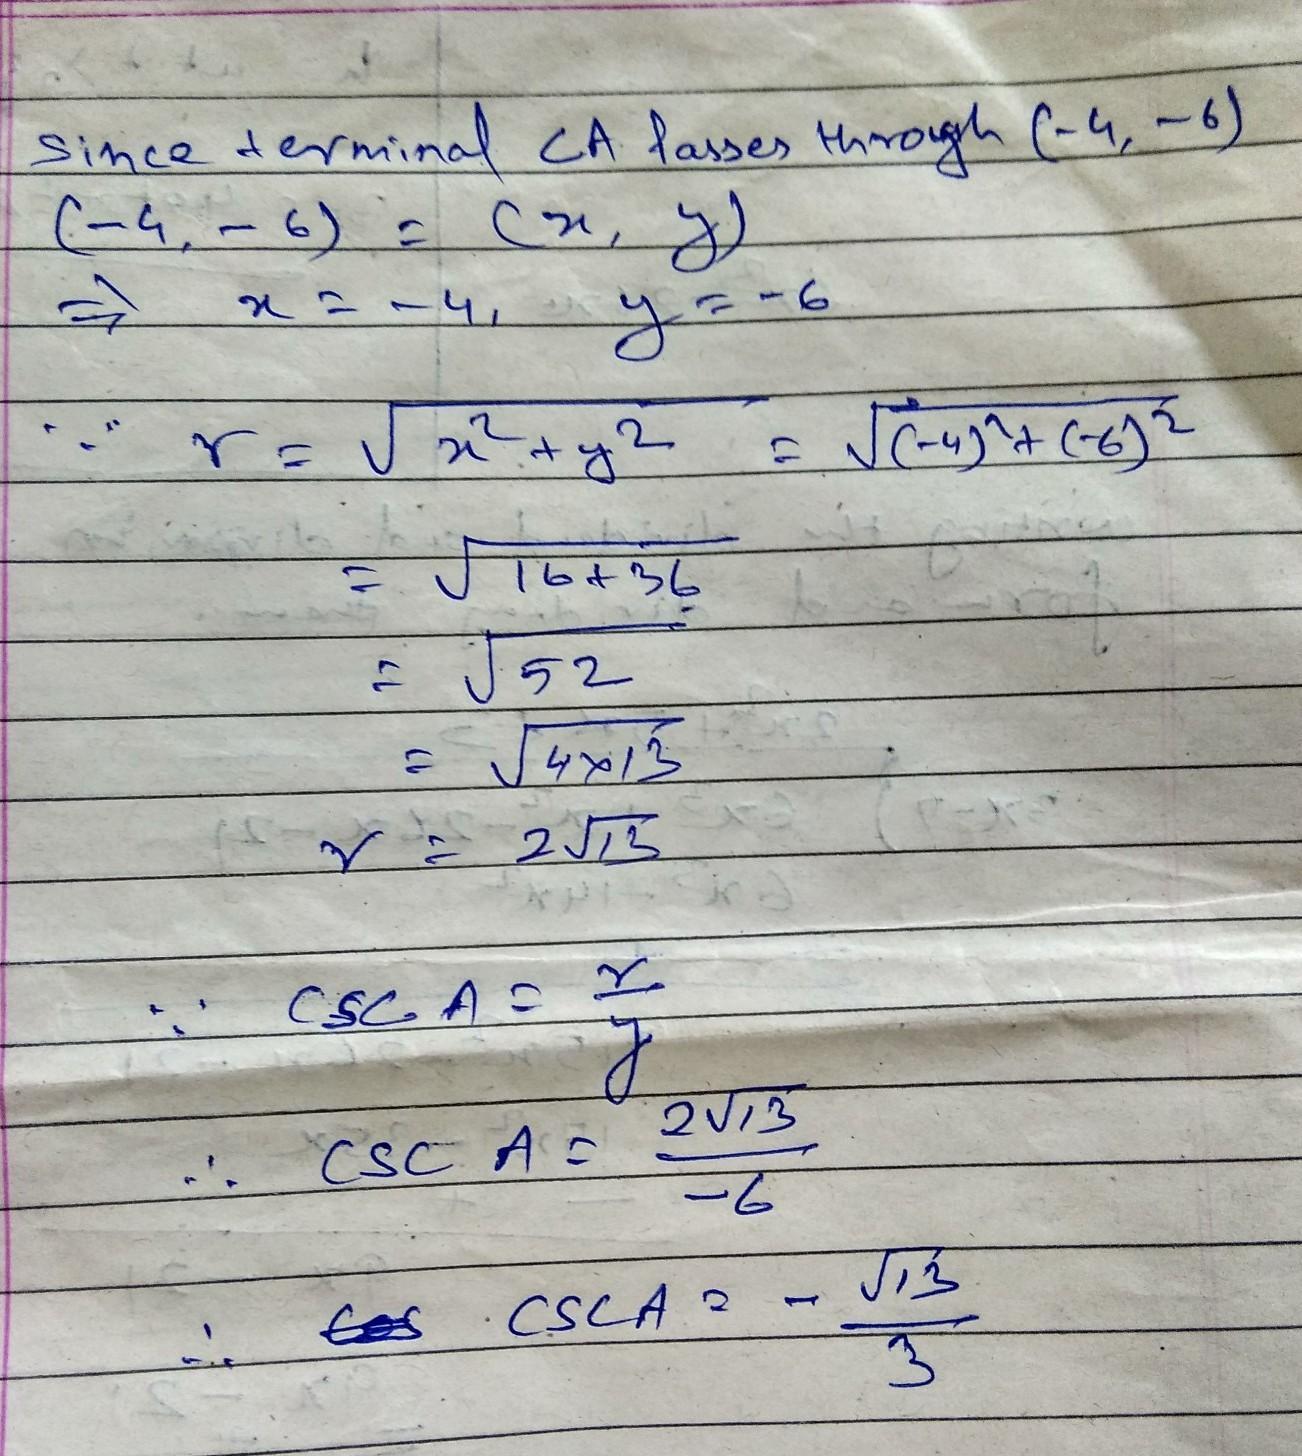 since terminal CA passes through (-4, -6)
(-4, -6) = (x, y)
⇒ x = -4, y = -6
∵ r = √x²+y² = √(-4)²+(-6)²
= √16+36
= √52
= √4×13
r = 2√13
∵ CSC A = r/y
∴ CSC A = 2√13/-6
∴ CSC A = -√13/3